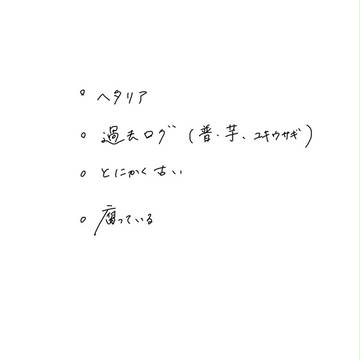 ○ ヘタリア
○ 過去ログ (普・芋、ユキウサギ)
○ とにかく古い
○ 腐っている